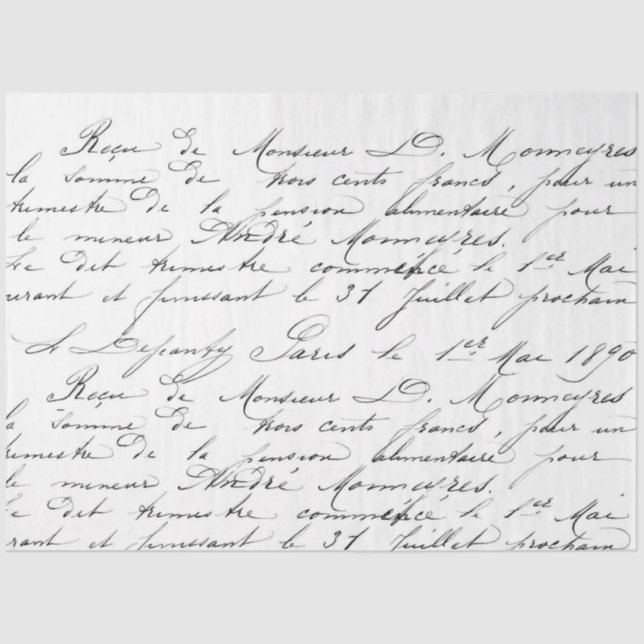 Reçu de Monsieur D. Monneyres
la somme de trois cents francs, pour un
trimestre de la pension alimentaire pour
le mineur André Monneyres.
Le dit trimestre commencé le 1er Mai
urant et finissant le 31 Juillet prochain
Paris le 1er Mai 1890
Reçu de Monsieur D. Monneyres
la somme de trois cents francs, pour un
rimestre de la pension alimentaire pour
le mineur André Monneyres.
e dit trimestre commencé le 1er Mai
rant et finissant le 31 Juillet prochain